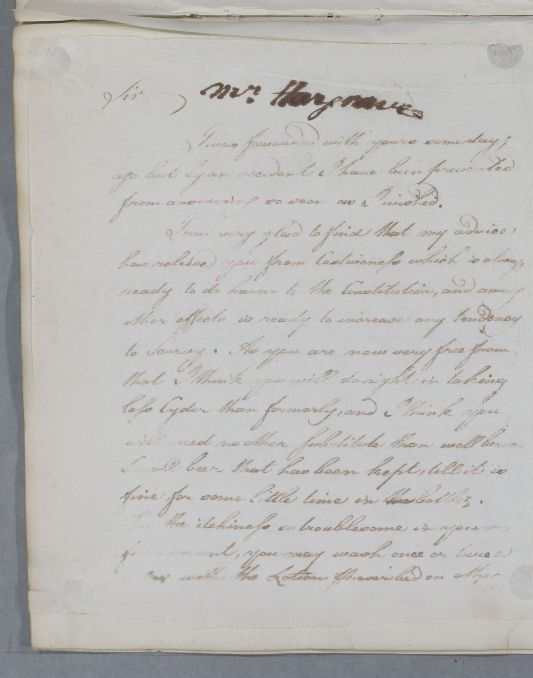 Sir Mr. Hargrave
I was favoured with yours some days
ago but by an accident I have been prevented
from answering so soon as I wished.
I am very glad to find that my advice
has relieved you from Costiveness which is always
ready to do harm to the Constitution, and among
other effects is ready to increase any tendency
to Scurvy. As you are now very free from
that I think you will do right in taking
less Cyder than formerly, and I think you
will need no other substitute than well
Small beer that has been kept till it is
fine for some little time in bottles.
the itchiness so troublesome in your
you may wash once or twice a
with the Lotion on other